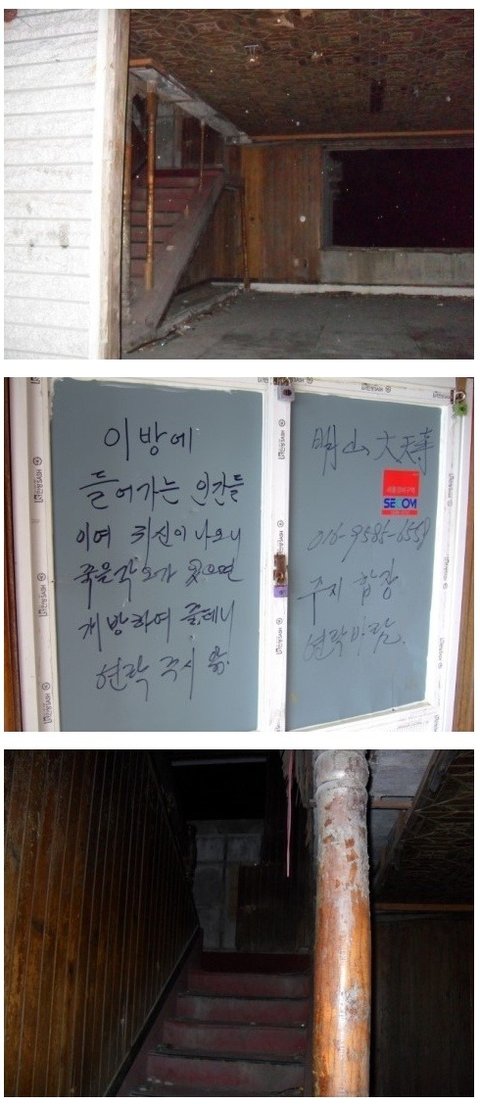 이 방에
들어가는 인간들
이여 귀신이 나오니
죽을 각오가 있으면
개방하여 줄테니
연락 주시
明山 大天事
SECOM
016-9585-6558
주지 합장
연락바람.